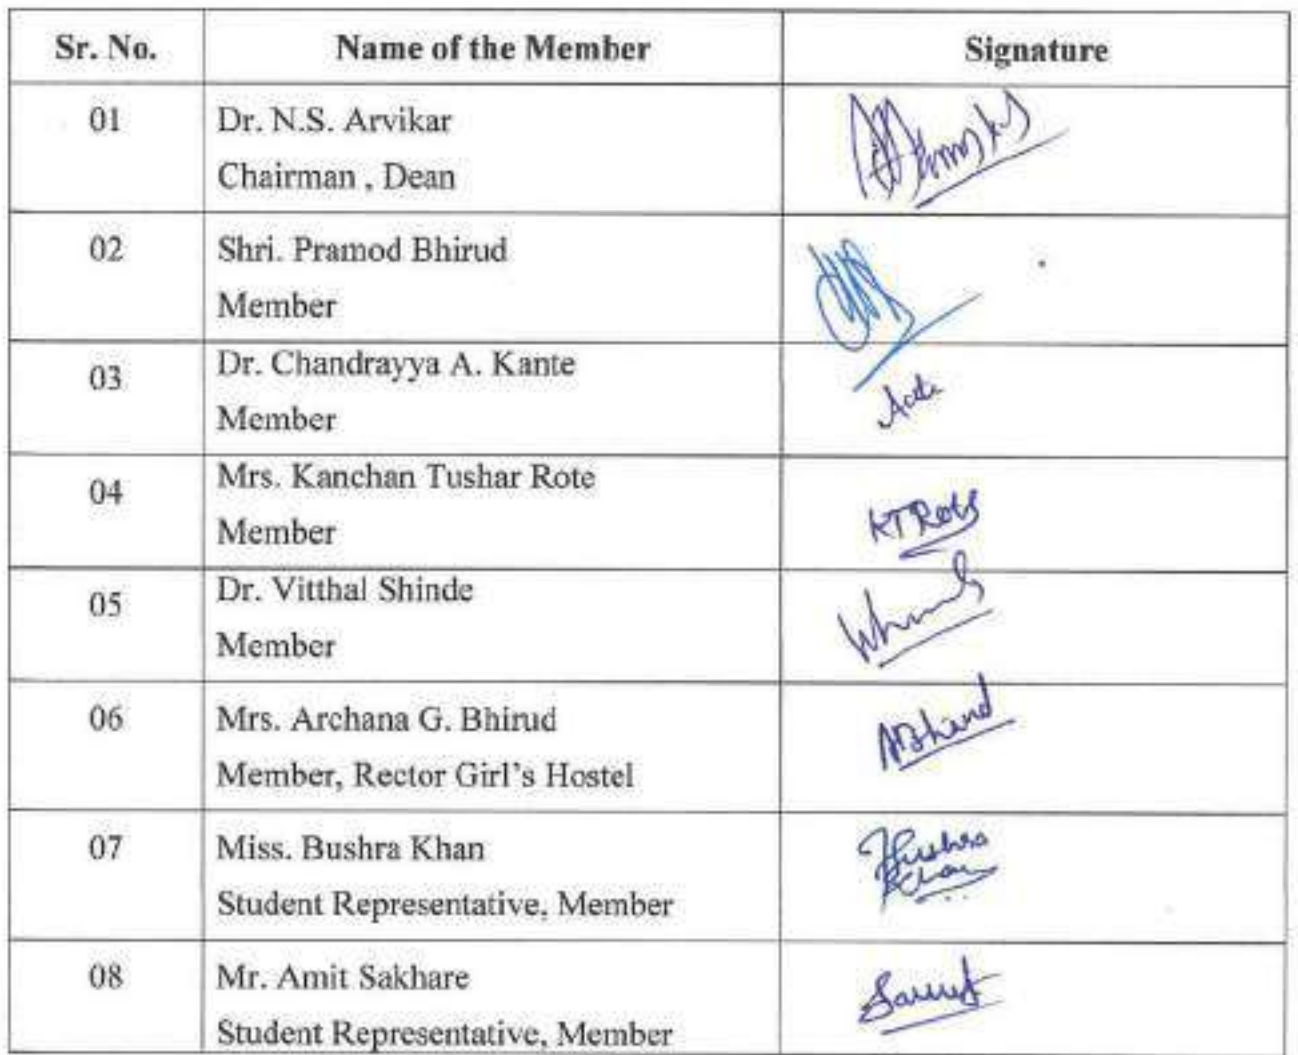 Sr. No. Name of the Member Signature
01 Dr. N.S. Arvikar
Chairman , Dean
02 Shri. Pramod Bhirud
Member
03 Dr. Chandrayya A. Kante
Member
04 Mrs. Kanchan Tushar Rote
Member KTRote
05 Dr. Vitthal Shinde
Member
06 Mrs. Archana G. Bhirud
Member, Rector Girl's Hostel
07 Miss. Bushra Khan Bushra
Student Representative, Member Khan
08 Mr. Amit Sakhare
Student Representative, Member